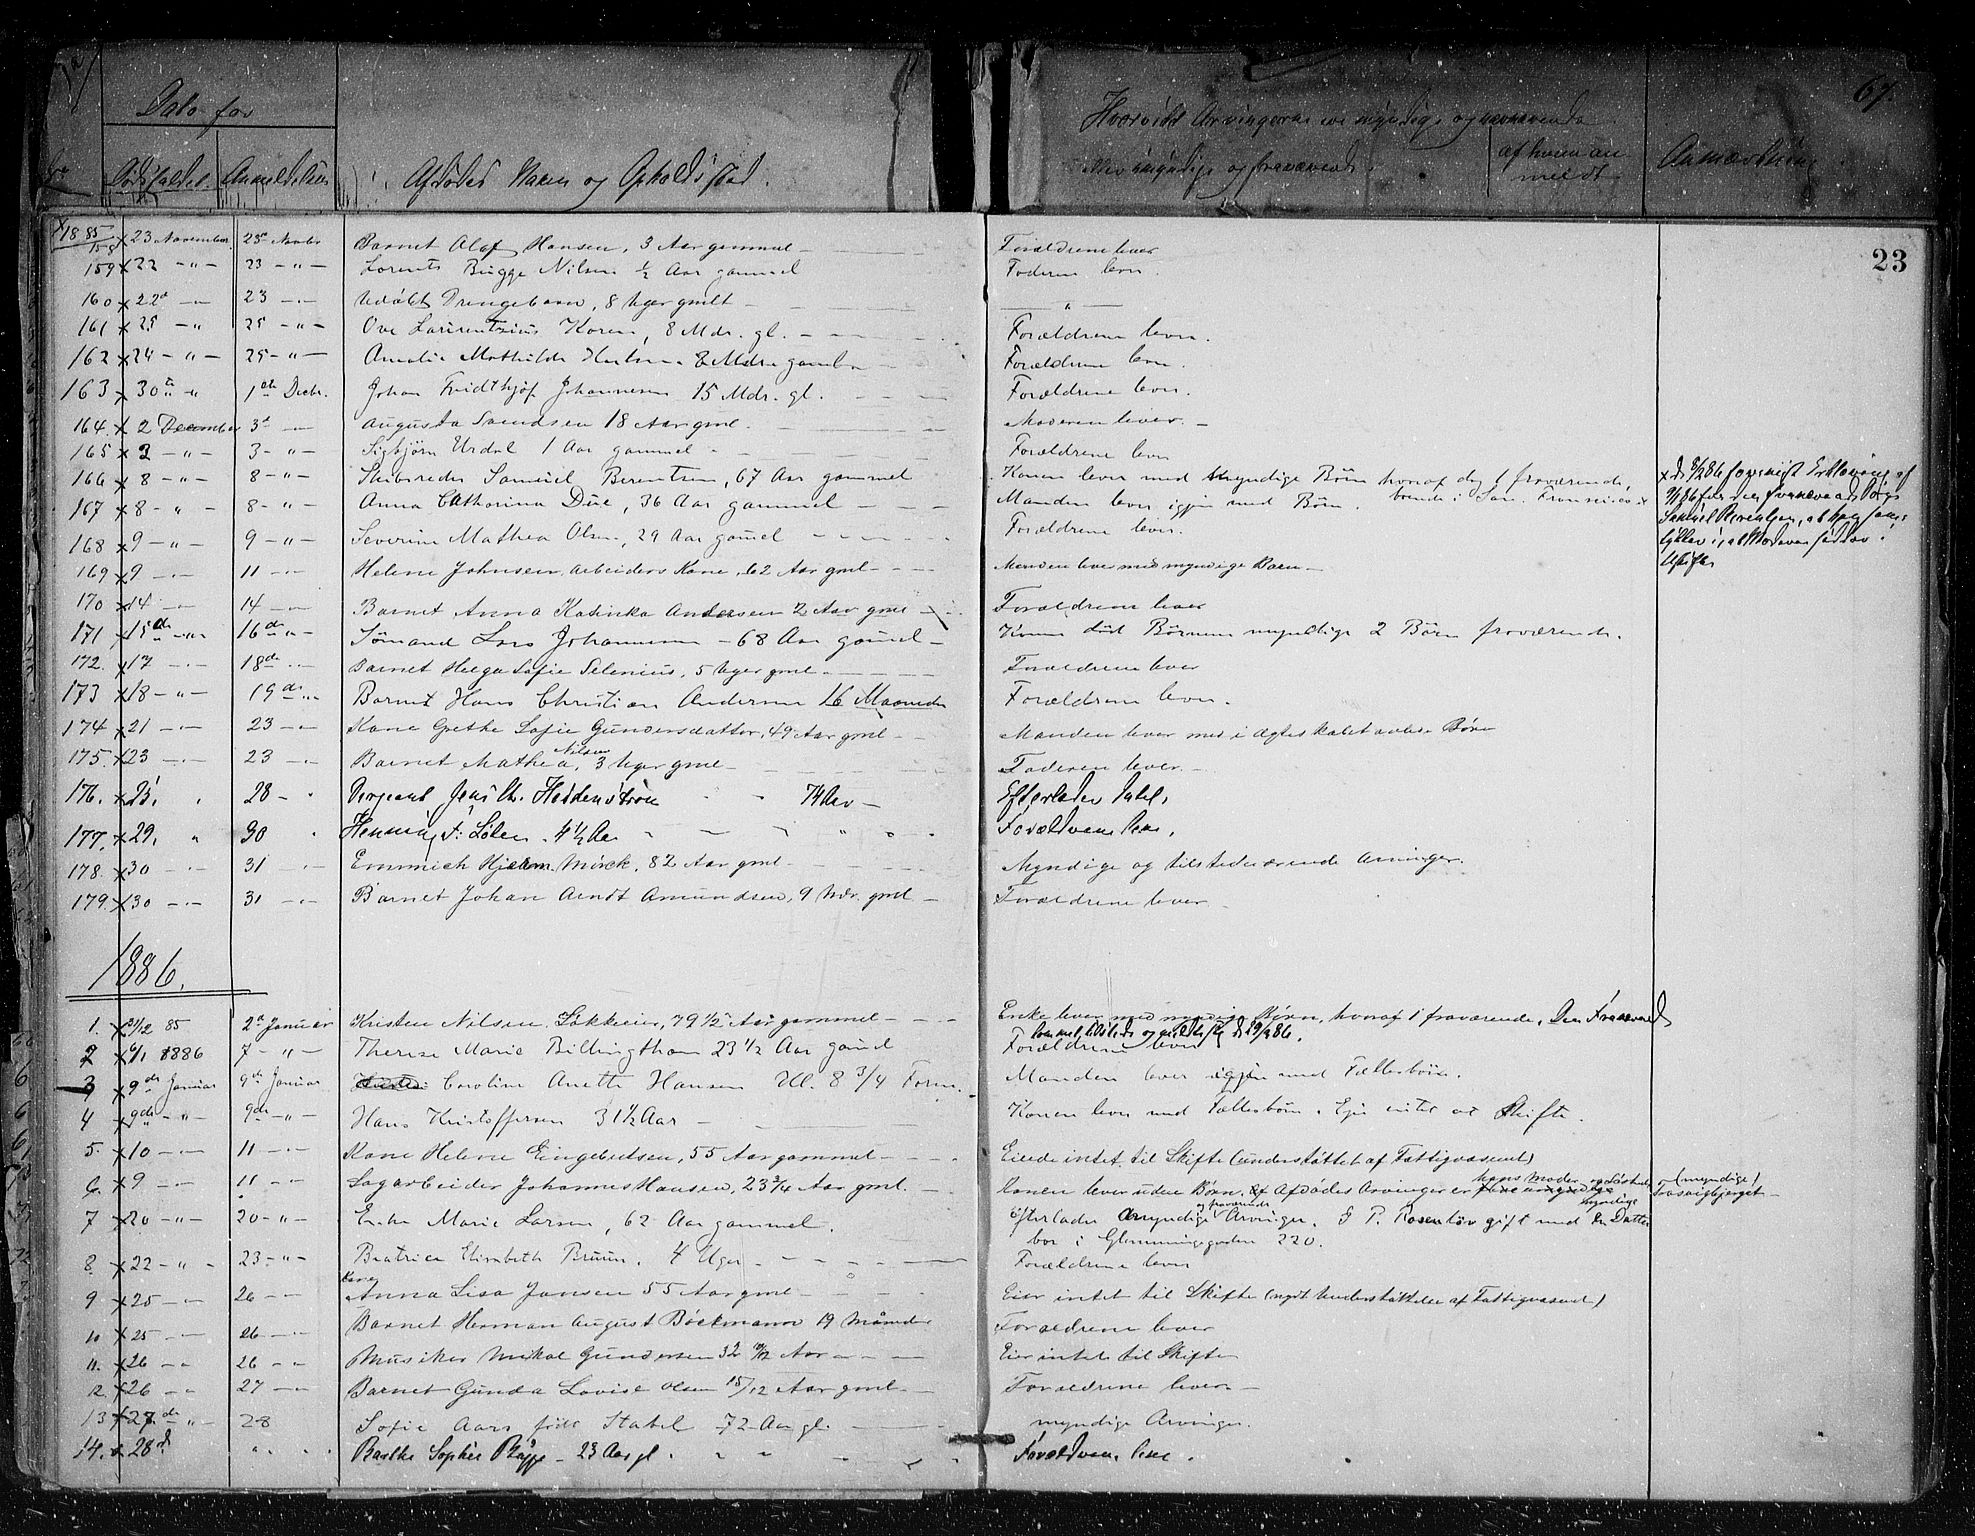 67.
Dato for
Hvorvidt Arvingerne ere myndige og nærværende
Dødsfaldet. Anmeldelsen
Afdødes Navn og Opholdssted.
eller umyndige og fraværende.
af hvem an
meldt
Anmærkning
23
1885
158 x 23 November 23de Novbr Barnet Olaf Hansen, 3 Aar gammel Forældrene lever
159 x 22 - " - 23 - " - Lorents Bugge Nilsen ½ Aar gammel Faderen lever.
160 x 22d - " - 23 - " - Udøbt Drengebarn, 8 Uger gmlt - " -
161 x 25 - " 25 - " - Ove Laurentzius Koren, 8 Mdr. gl. Forældrene lever.
162 x 24 - " - 25 - " - Amalie Mathilde 8 Mdr gammel Forældrene lever.
163 x 30te " 1ste Decbr. Johan Fridthjof Johannesen 15 Mdr. gl. Forældrene lever.
164. x 2 December 3d - " - Augusta Svendsen 18 Aar gml. Moderen lever. -
165 x 2 - " - 3 - " - Sigbjørn Urdal 1 Aar gammel Forældrene lever
166 x 8 - " - 8 - " - Skibsreder Samuel Berentsen, 67 Aar gammel Konen lever med myndige Børn hvoraf dog 1 fraværende,
boende i San. Francisco x
167 x 8 - " - 8 - " - Anna Cathorina Due, 36 Aar gammel Manden lever igjen med Børn.
168 x 9 - " - 9 - " - Severine Mathea Olsen, 29 Aar gammel Forældrene lever.
x d. 8/2 86 foreviist Erklæring af
Samuel Berentsen, at han sam-
tykker i, at Moderen sidder i
Uskifte
169 x 9 - " - 11 - " - Helene Johnsen, Arbeiders Kone, 62 Aar gml Manden lever med myndige Børn -
170 x 14 - " - 14 - " - Barnet Anna Katinka Andersen 2 Aar gml Forældrene lever
171 x 15de - " - 16de " - Sømand Lars Johannesen - 68 Aar gammel Konen død Børnene myndige 2 Børn fraværende.
172. x 17 - " - 18de - " - Barnet Helga Sofie Selenius, 5 Uger gml Forældrene lever
173 x 18 - " - 19de " Barnet Hans Christian Andersen 16 Maaneder Forældrene lever.
174 x 21 - " - 23 - " - Kone Grethe Sofie Gundersdatter, 49 Aar gml Manden lever med i Ægteskabet avlede Børn
175. x 23 - " - 23 - " - Barnet Mathea Nilsen, 3 Uger gml Faderen lever. -
176. x 25. " 28 - " Sergeant Jens Ch. Heddenstrøm 74 Aar - Efterlader Intet.
177. x 29. " 30 Henning F. Sølen - 4½ Aar Forældrene leve.
178. x 30 - " - 31 - " Emmich Hjelm Mörck, 82 Aar gml Myndige og tilstedeværende Arvinger.
179. x 30 - " - 31 - " - Barnet Johan Arndt Amundsen, 9 Mdr. gml Forældrene lever -
1886.
1. x 31/12 85 2d Januar Kristen Nilsen, Løkkeeier, 79½ Aar gammel Enke lever med myndige Børn, hvoraf 1 fraværende, Den Fraværende
kommet tilstede og 29/9 86.
2 x 6/1 1886 7 - " - Therese Marie Billingthon 23½ Aar gammel Forældrene lever
3 x 9de Januar 9de Januar Caroline Anette Hansen Kl. 8 3/4 Form. Manden lever igjen med Fællesbørn.
4 x 9de - " - 9de - " - Hans Kristoffersen 31½ Aar Konen lever med Fællesbørn. Eje intet at Skifte.
5. x 10 - " - 11 - " - Kone Helene Engebretsen, 55 Aar gammel Eiede intet til Skifte (understøttet af Fattigvæsenet)
6. x 9 - " - 11 - " - Sagarbeider Johannes Hansen, 23 3/4 Aar gml. Konen lever uden Børn. Af Afdødes Arvinger er hans Moder og Søskende (myndige) myndige
7 x 20 - " - 20 - " - Enke Marie Larsen, 62 Aar gammel. Efterlader myndige og fraværende Arvinger. G P. Rosenløv gift med en Datter
bor i Glemmingegaden 220.
8. x 22 - " - 23 - " - Beatrice Elisabeth Bruun. 4 Uger Forældrene lever
9 x 25 - " - 26 - " - Kone Anna Lisa Jansen 55 Aar gml Eier intet til Skifte (nydt Understøttelse af Fattigvæsenet)
10 x 25 - " - 26 - " - Barnet Herman August Böckmann 19 Måneder Forældrene lever
11. x 26 - " 26 - " - Musiker Mikal Gundersen 32 10/12 Aar Eier intet til Skifte
12. x 26 - " 27 - " - Barnet Gunda Lovise Olsen 15/12 Aar gml Forældrene lever -
13 x 27de - " - 28 Sofie Aars født Stabel 72 Aar gl. myndige Arvinger.
14. x 28d " " Barthe Sophie Bügge - 23 Aar gl. Forældrene leve.